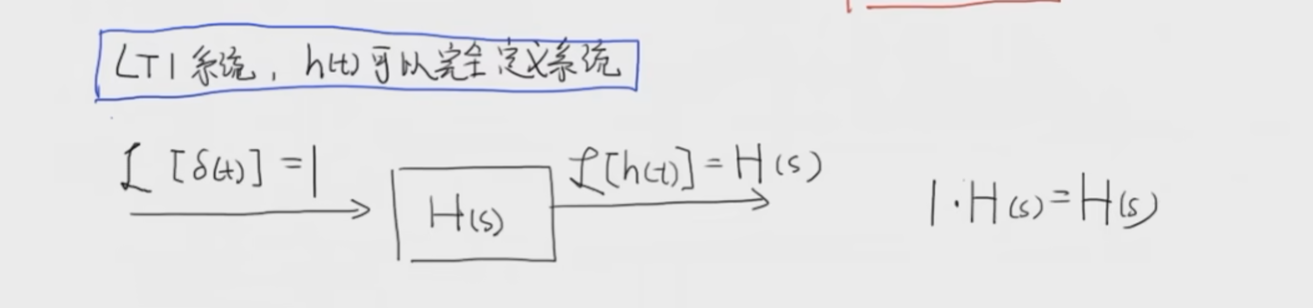 LTI 系统，h(t)可以完全定义系统
ℒ[δ(t)]=1
H(s)
ℒ[h(t)]=H(s)
1·H(s)=H(s)